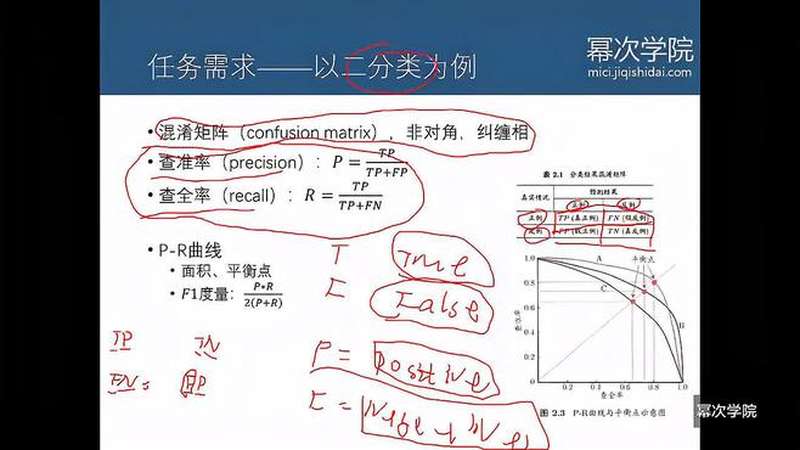 任务需求——以二分类为例
幂次学院
mici.jiqishidai.com
• 混淆矩阵（confusion matrix），非对角，纠缠相
• 查准率（precision）：P = TP / TP+FP
• 查全率（recall）：R = TP / TP+FN
• P-R曲线
• 面积、平衡点
• F1度量：P*R / 2(P+R)
T True
F False
P = Positive
TP TN
FN FP
表 2.1 分类结果混淆矩阵
真实情况 预测结果
正例 反例
正例 TP (真正例) FN (假反例)
反例 FP (假正例) TN (真反例)
平衡点
A
B
C
1.0
0.8
0.6
0.4
0.2
0 0.2 0.4 0.6 0.8 1.0
查准率
查全率
图 2.3 P-R曲线与平衡点示意图
幂次学院